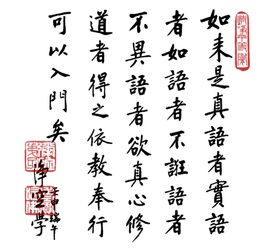 如来是真語者實語
者如語者不誑語者
不異語者欲真心修
道者得之依教奉行
可以入門矣
淨空